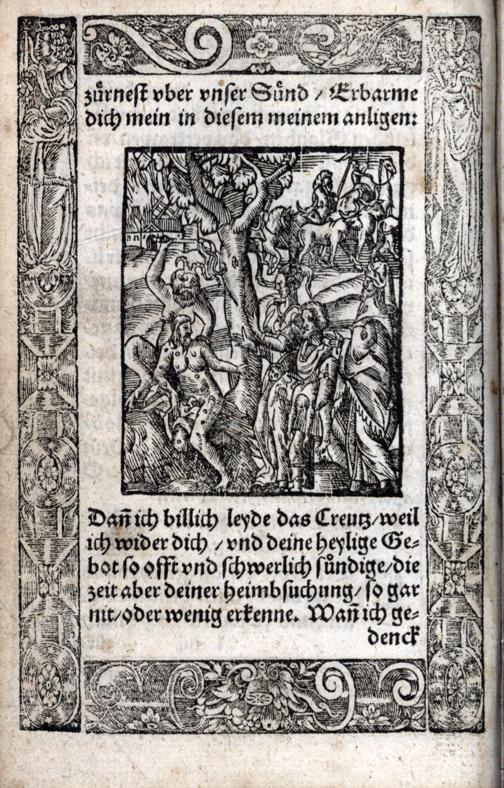 zürnest vber vnser Sünd / Erbarme
dich mein in diesem meinem anligen:
Dañ ich billich leyde das Creutz/weil
ich wider dich / vnd deine heylige Ge-
bot so offt vnd schwerlich sündige/die
zeit aber deiner heimbsuchung/ so gar
nit/oder wenig erkenne. Wañ ich ge-
denck